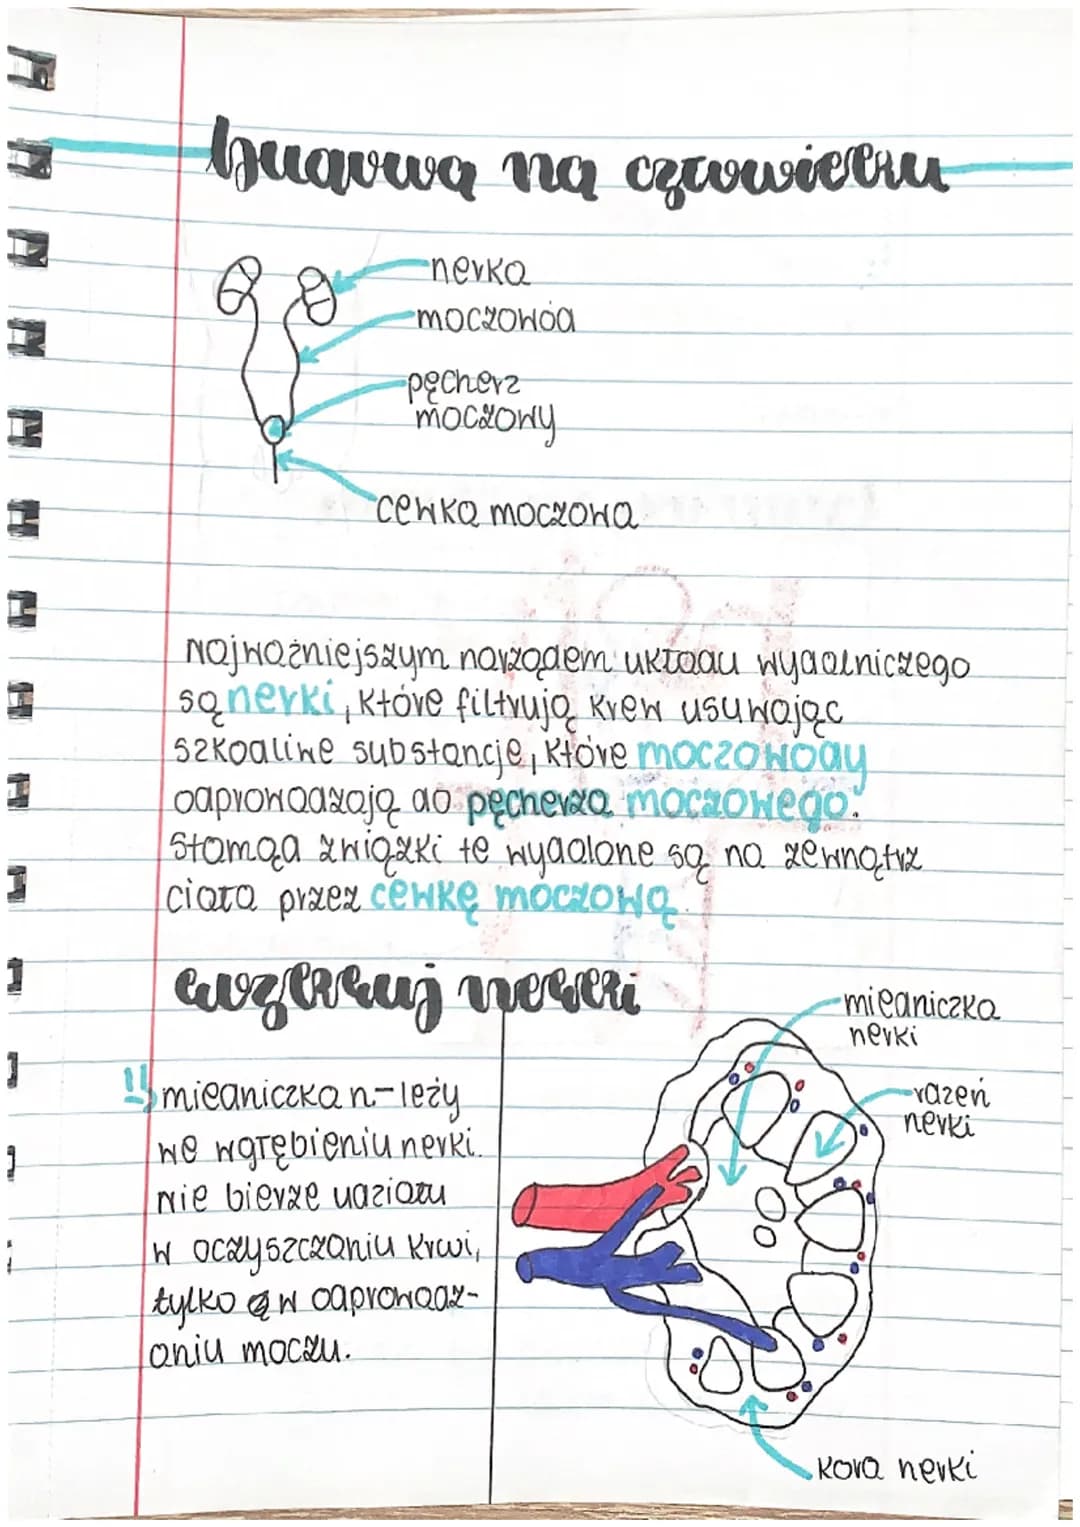 budowa na człowieku
nerka
moczowód
pęcherz
moczowy
cewka moczowa
Najważniejszym narządem układu wydalniczego
są nerki, które filtrują krew usuwając
szkodliwe substancje, które moczowody
odprowadzają do pęcherza moczowego.
Stamąd związki te wydalane są na zewnątrz
ciała przez cewkę moczową.
nerki
miedniczka
nerki
rdzeń
nerki
!! miedniczka n-leży
we wgłębieniu nerki.
nie bierze udziału
w oczyszczaniu krwi,
tylko w odprowadz-
aniu moczu.
kora nerki